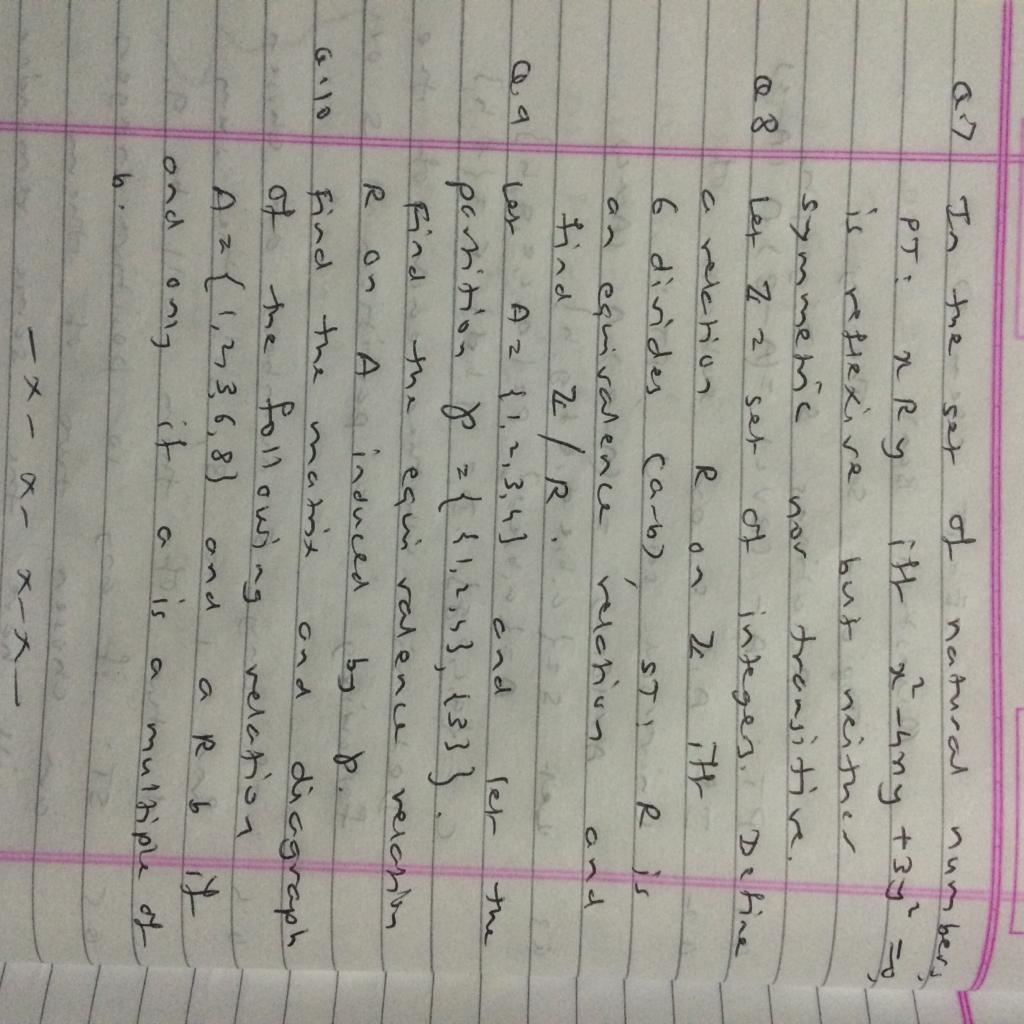 Q.7 In the set of natural numbers,
PT: x R y iff x² - 4xy + 3y² = 0,
is reflexive but neither
symmetric nor transitive.
Q 8 Let Z = set of integes. Define
a relation R on Z iff
6 divides (a-b), ST: R is
an equivalence relation and
find Z / R.
Q.9 Let A = {1, 2, 3, 4} and let the
partition P = { {1, 2, 4}, {3} }.
Find the equivalence relation
R on A induced by P.
Q.10 Find the matrix and diagraph
of the following relation
A = {1, 2, 3, 6, 8} and a R b if
and only if a is a multiple of
b.
— x — x — x — x —